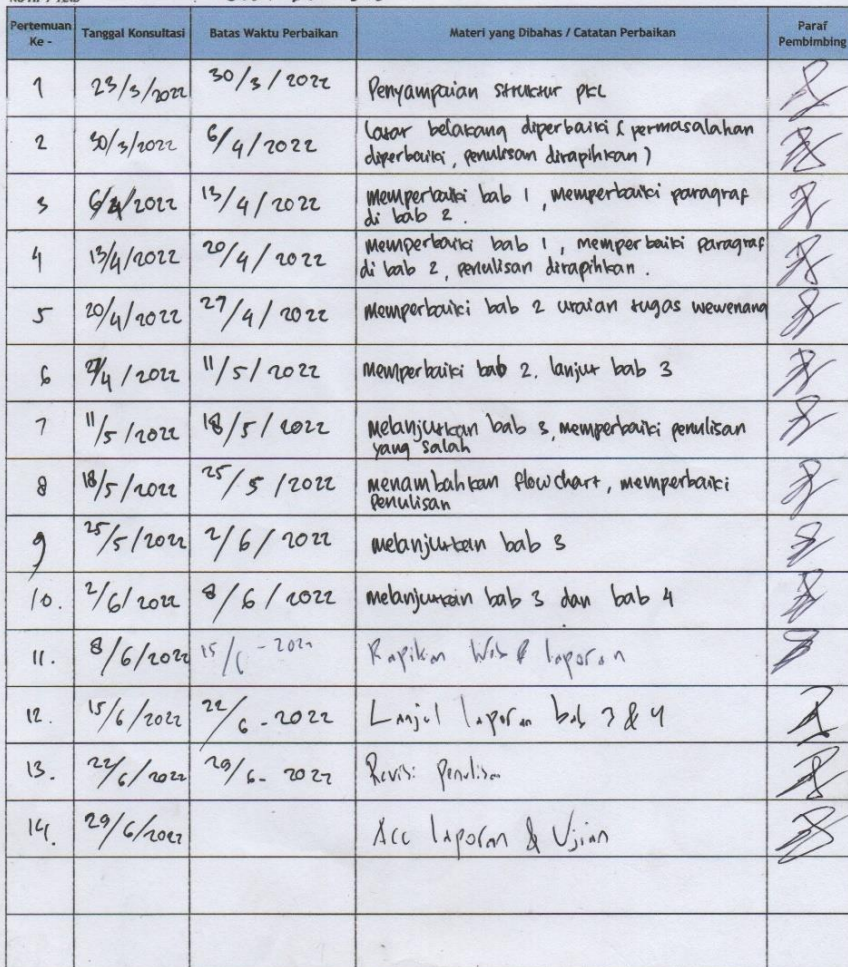 Pertemuan Ke - Tanggal Konsultasi Batas Waktu Perbaikan Materi yang Dibahas / Catatan Perbaikan Paraf Pembimbing
1 23/3/2022 30/3/2022 Penyampaian struktur PKL
2 30/3/2022 6/4/2022 Latar belakang diperbaiki ( permasalahan
diperbaiki, penulisan dirapihkan )
3 6/4/2022 13/4/2022 memperbaiki bab 1, memperbaiki paragraf
di bab 2.
4 13/4/2022 20/4/2022 memperbaiki bab 1, memperbaiki paragraf
di bab 2, penulisan dirapihkan.
5 20/4/2022 27/4/2022 memperbaiki bab 2 uraian tugas wewenang
6 27/4/2022 11/5/2022 memperbaiki bab 2. lanjut bab 3
7 11/5/2022 18/5/2022 melanjutkan bab 3, memperbaiki penulisan
yang salah
8 18/5/2022 25/5/2022 menambahkan flowchart, memperbaiki
penulisan
9 25/5/2022 2/6/2022 melanjutkan bab 3
10. 2/6/2022 8/6/2022 melanjutkan bab 3 dan bab 4
11. 8/6/2022 15/6-2022 Rapikan Web & laporan
12. 15/6/2022 22/6-2022 Lanjut laporan bab 3 & 4
13. 22/6/2022 29/6-2022 Revisi Penulisan
14. 29/6/2022 Acc laporan & Ujian